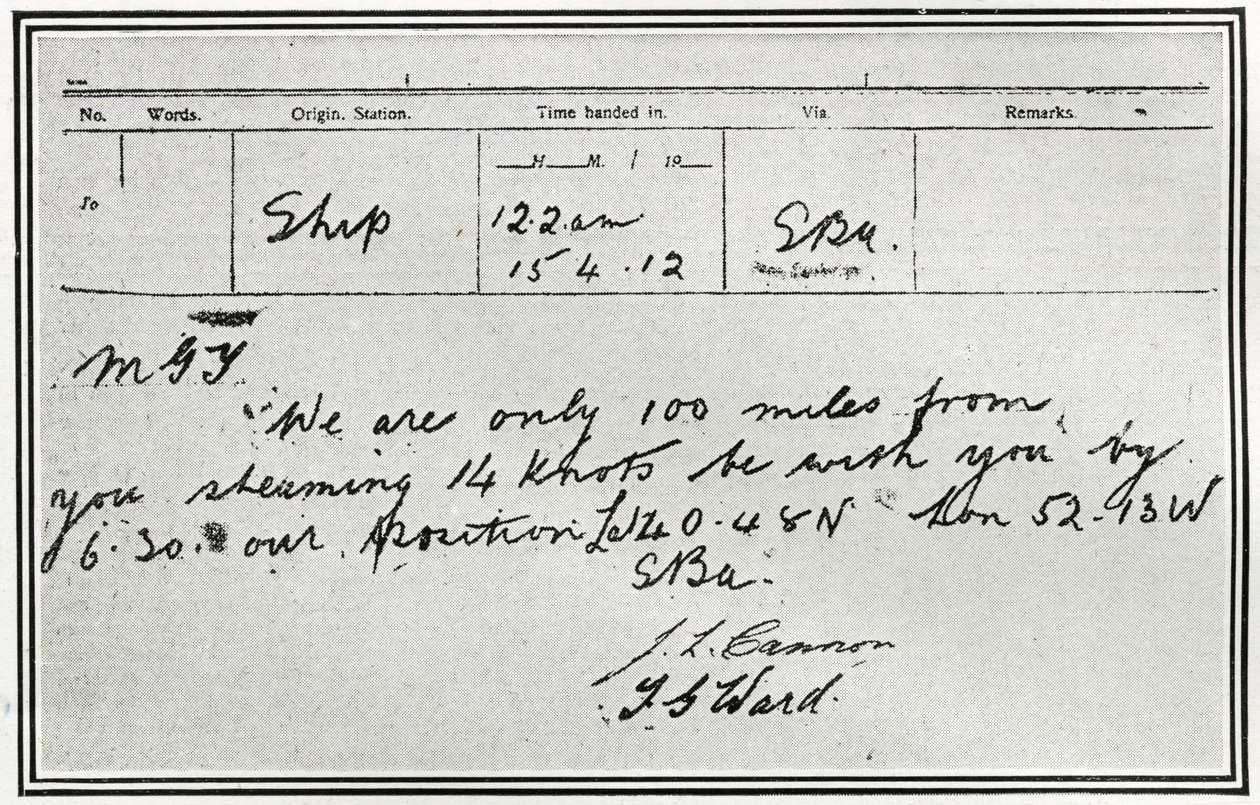 No. Words. Origin. Station. Time handed in. Via. Remarks.
H. M. / 19
To
Ship 12.2.am SBa.
15 4 .12
MGY
We are only 100 miles from
you steaming 14 knots be with you by
6.30. our position Lat 40.48N Lon 52.13W
SBa.
J. L. Cannon
F G Ward.